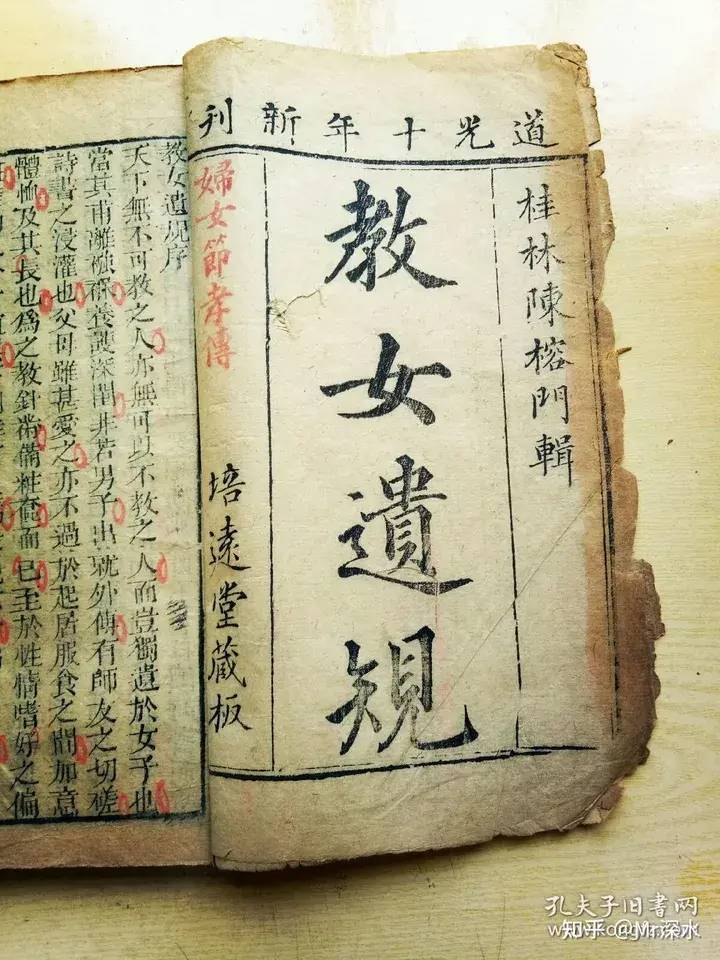 道光十年新刊
桂林陳榕門輯
教女遺䂓
婦女節孝傳
培遠堂蔵板
教女遺規序
天下無不可教之人亦無可以不教之人而豈獨遺於女子也
當其甫離襁褓養護深閨非若男子出就外傅有師友之切磋
詩書之浸灌也父母雖甚愛之亦不過於起居服食之間加意
體恤及其長也為之教針黹備粧奩而已至於性情嗜好之偏
孔夫子旧书网
知乎 @Mr深水